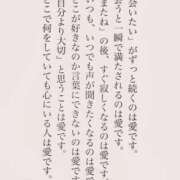 会いたい」がずっと続くのは愛です。
会うと、一瞬で満たされるのは愛です。
またね」の後、すぐ寂しくなるのは愛です。
いつも、いつでも声が聞きたくなるのは愛です。
どこが好きなのか言葉にできないのは愛です。
自分より大切」と思うことは愛です。
どこで何をしていても心にいる人は愛です。